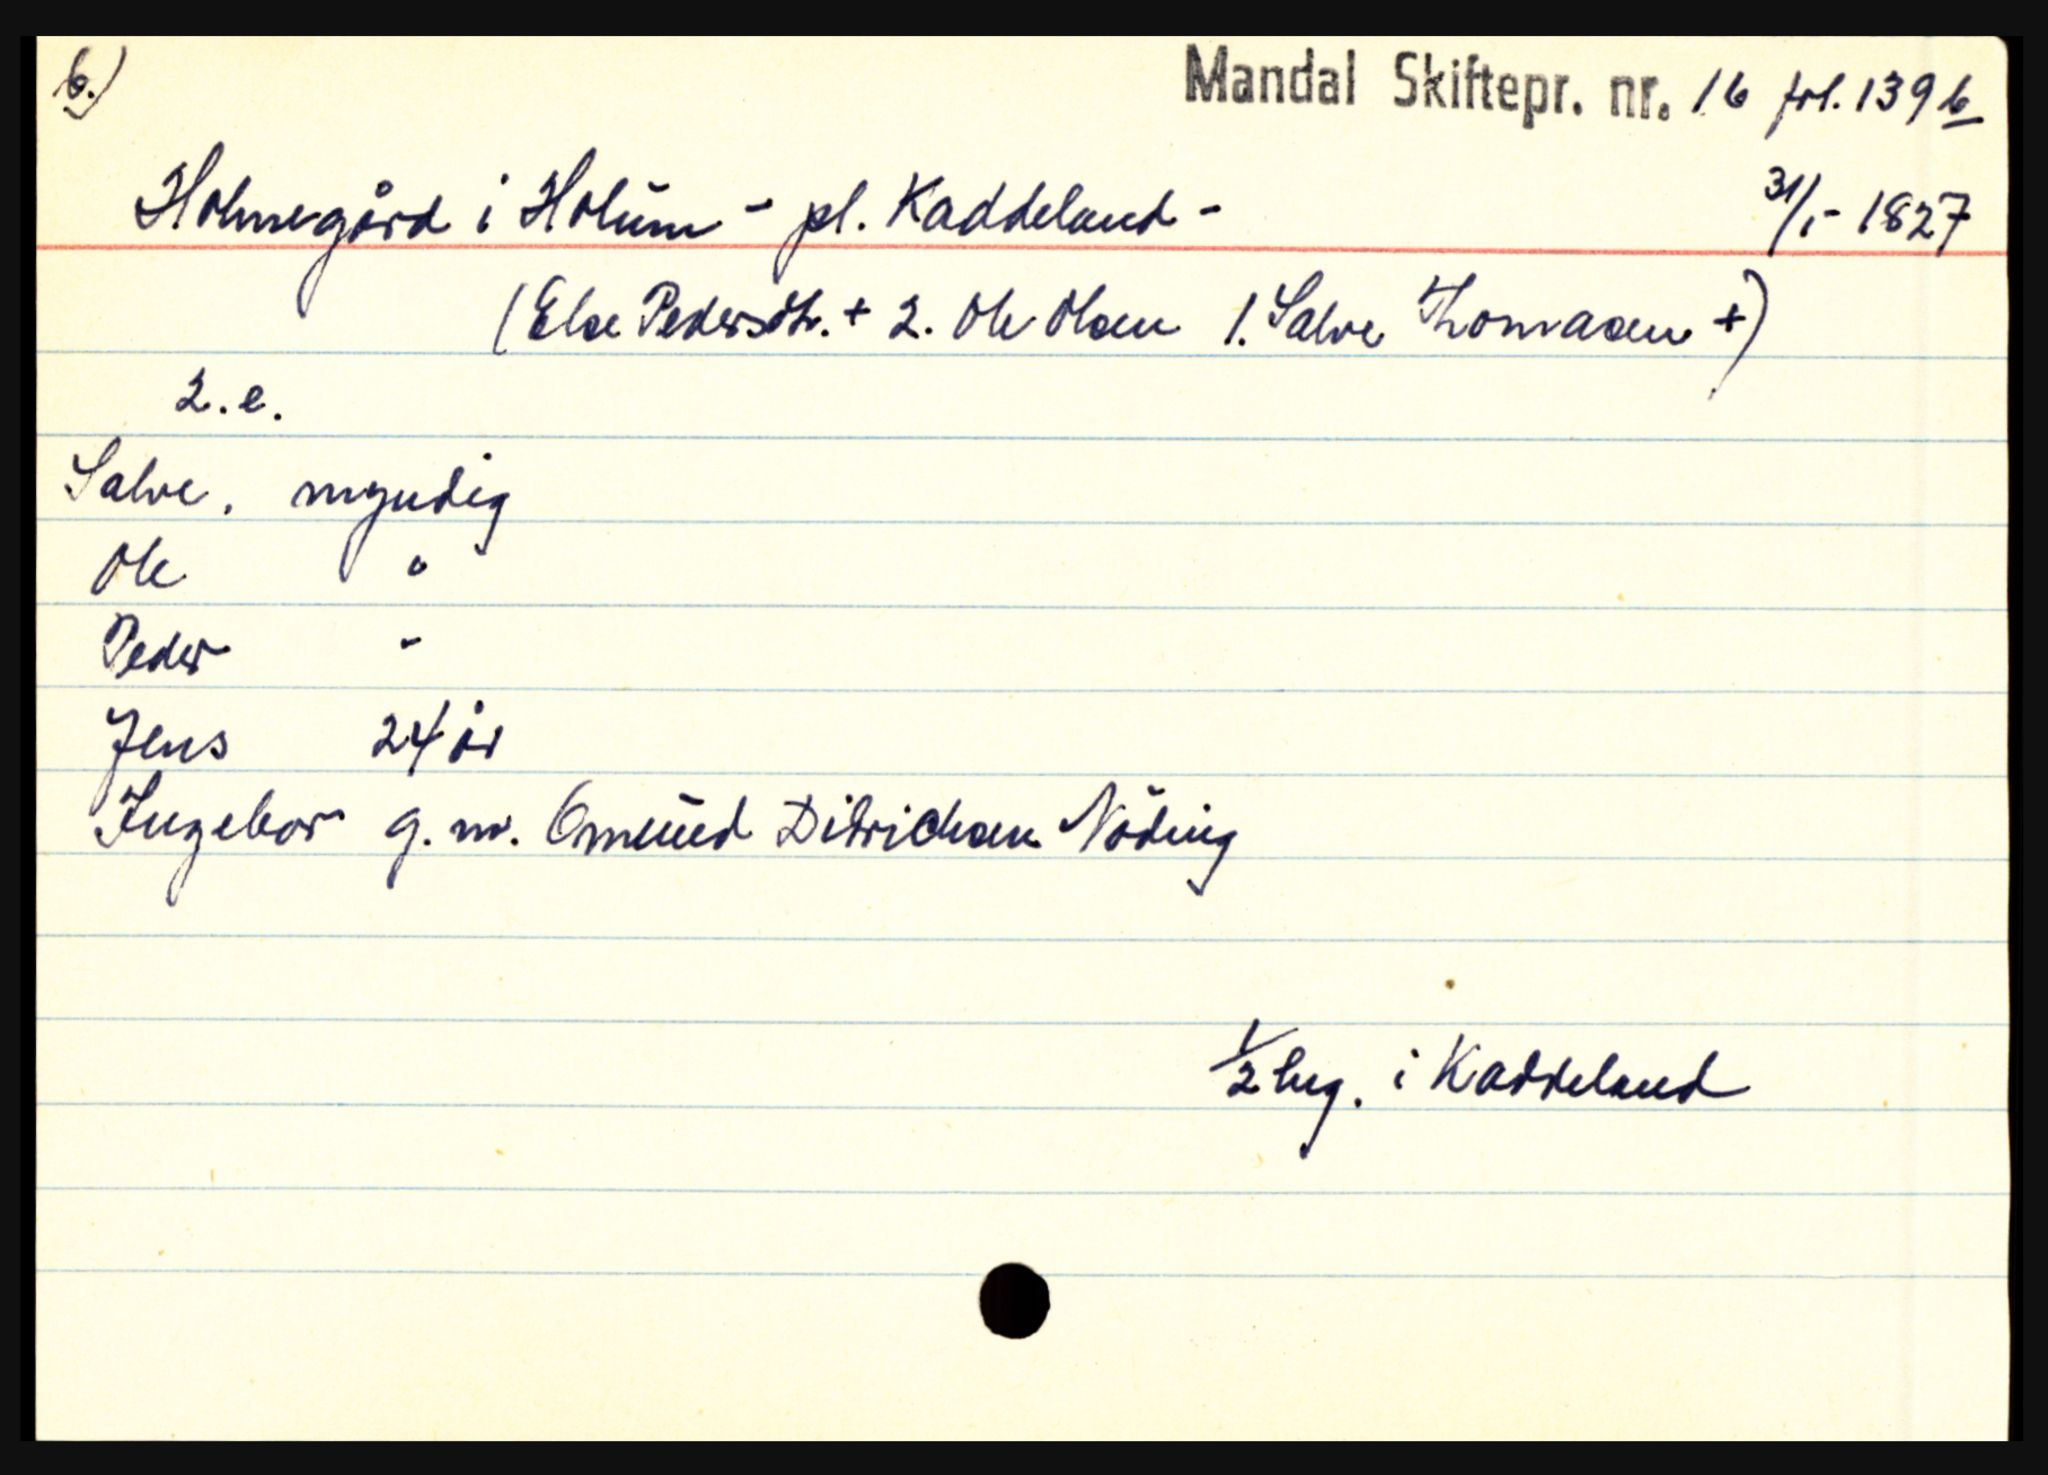 b.)
Mandal Skiftepr. nr. 16 fol. 139 b
Holmegård i Holum - pl. Kaddeland - 31/1- 1827
(Else Pedersdtr. + 2. Ole Olsen 1. Salve Thomasen +)
2. e.
Salve. myndig
Ole "
Peder "
Jens 24 år
Ingebor g. m. Omund Ditrichsen Nöding
1/2 hug. i Kaddeland